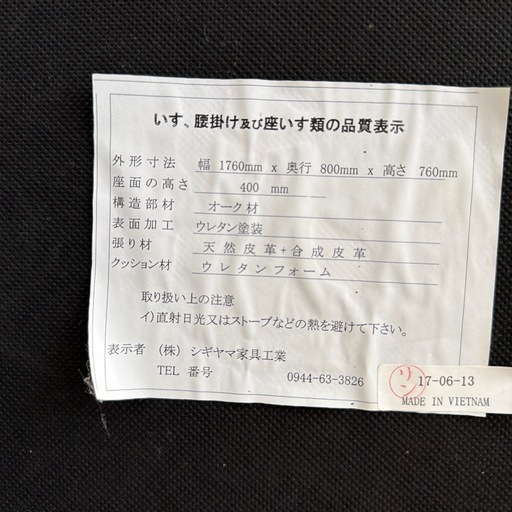 いす、腰掛け及び座いす類の品質表示
外形寸法 幅 1760mm x 奥行 800mm x 高さ 760mm
座面の高さ 400 mm
構造部材 オーク材
表面加工 ウレタン塗装
張り材 天然皮革+合成皮革
クッション材 ウレタンフォーム
取り扱い上の注意
イ)直射日光又はストーブなどの熱を避けて下さい。
表示者 (株) シギヤマ家具工業
TEL 番号 0944-63-3826
17-06-13
MADE IN VIETNAM